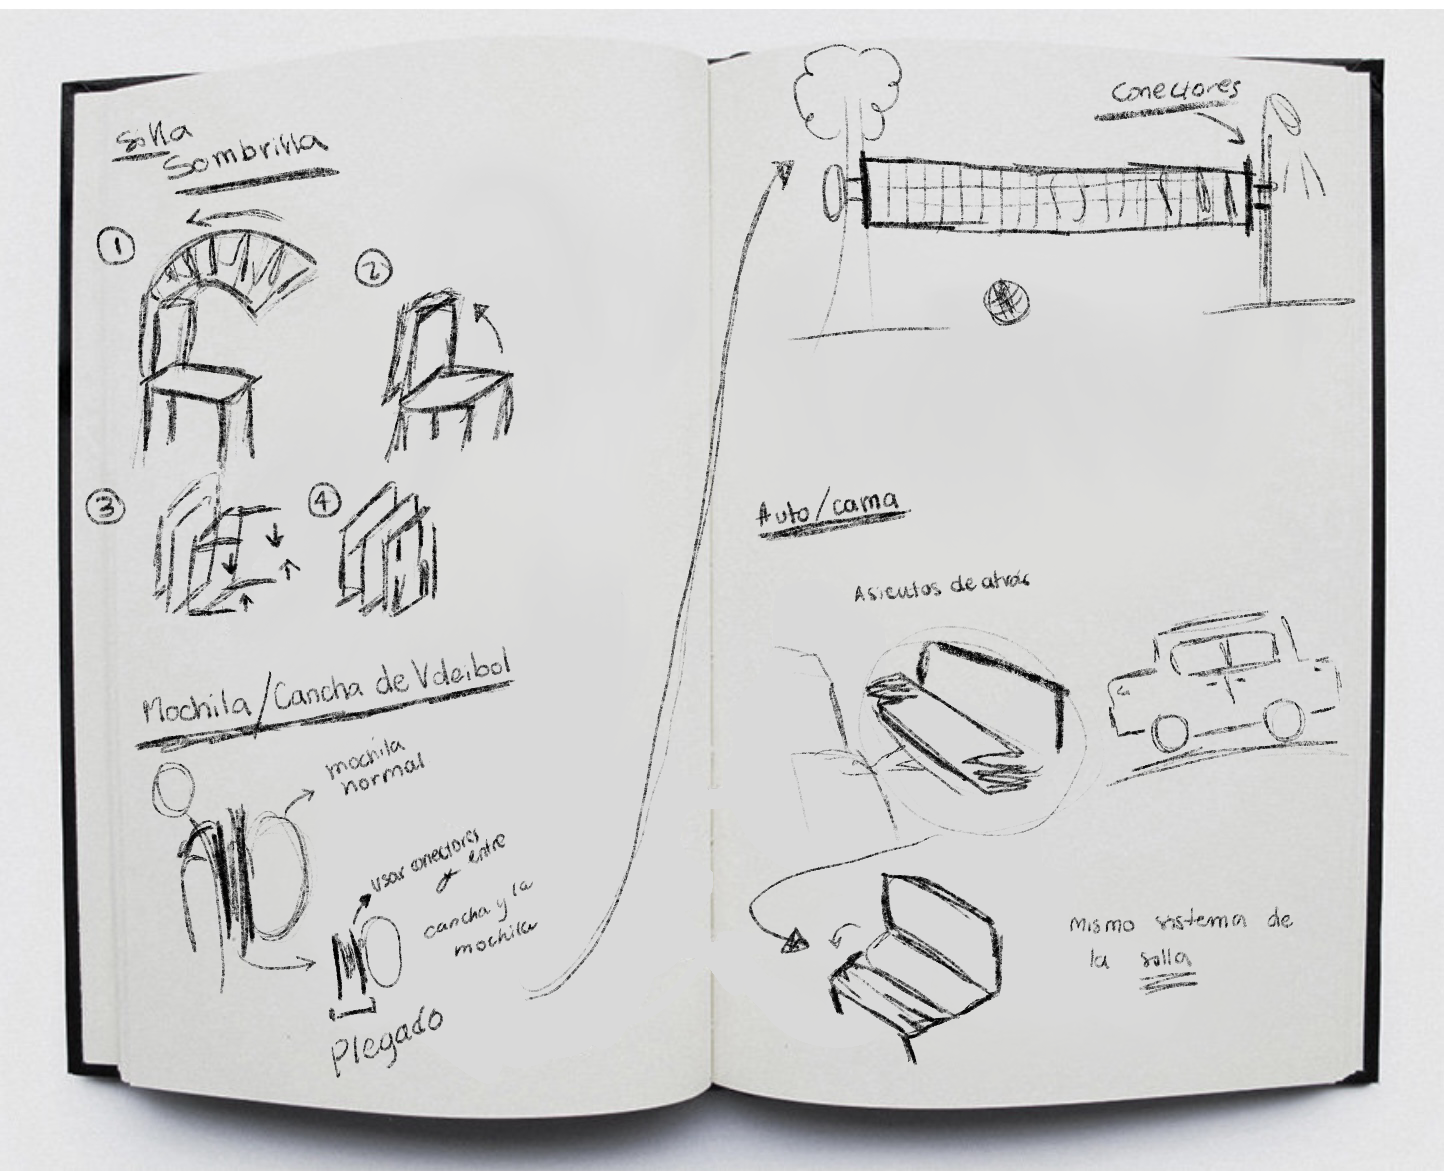 silla
Sombrilla
1
2
3
4
Mochila/Cancha de Voleibol
mochila
normal
usar conectores
entre
cancha y la
mochila
Plegado
Conectores
Auto/cama
Asientos de atrás
Mismo sistema de
la silla